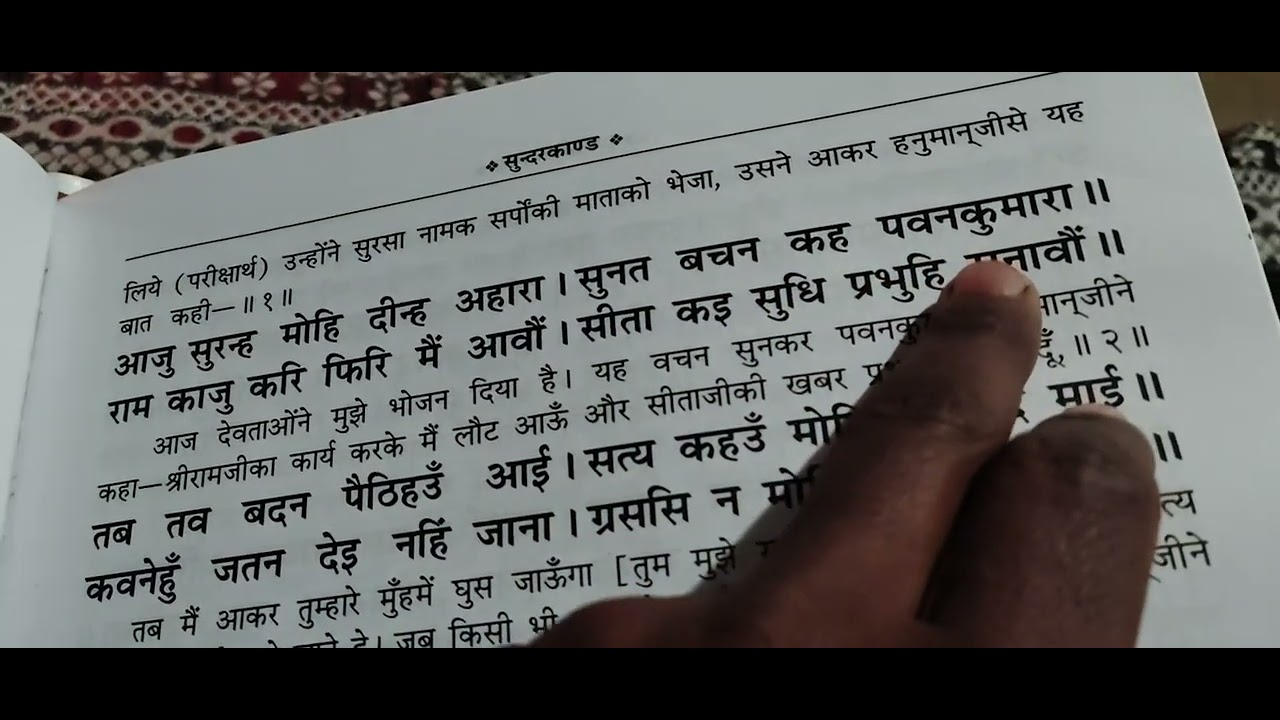 ❖ सुन्दरकाण्ड ❖
लिये (परीक्षार्थ) उन्होंने सुरसा नामक सर्पोंकी माताको भेजा, उसने आकर हनुमान्‌जीसे यह
बात कही—॥ १॥
आजु सुरन्ह मोहि दीन्ह अहारा। सुनत बचन कह पवनकुमारा॥
राम काजु करि फिरि मैं आवौं। सीता कइ सुधि प्रभुहि सुनावौं॥
आज देवताओंने मुझे भोजन दिया है। यह वचन सुनकर
कहा—श्रीरामजीका कार्य करके मैं लौट आऊँ और सीताजीकी खबर ॥ २॥
तब तव बदन पैठिहउँ आई। सत्य कहउँ माई॥
कवनेहुँ जतन देइ नहिं जाना। ग्रससि न ॥
तब मैं आकर तुम्हारे मुँहमें घुस जाऊँगा [तुम मुझे
जब किसी भी